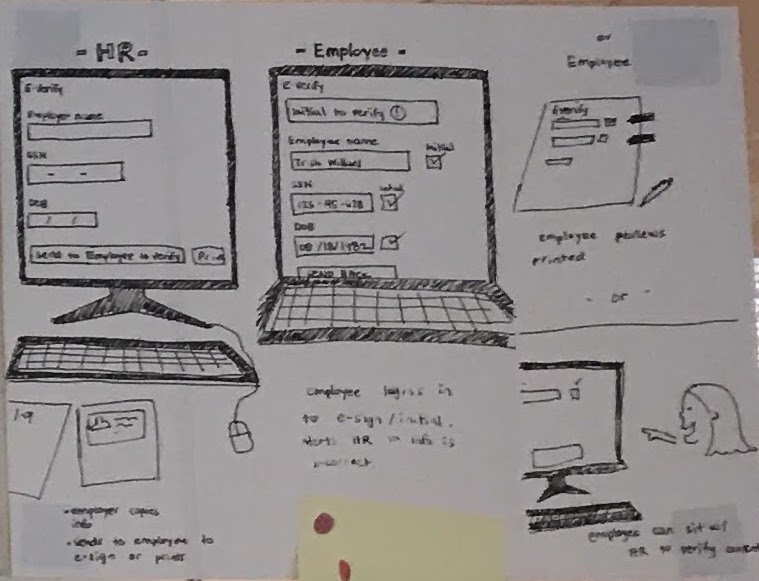 - HR -
E-Verify
Employee name
SSN
- -
DOB
/ /
Send to Employee to verify
Print
I-9
- employer copies
info
- sends to employee to
e-sign or prints
- Employee -
E-Verify
Initial to verify
Employee name
Initial
Trish Willard
SSN
initial
DOB
08/18/1982
SEND BACK
employee logins in
to e-sign/initial,
alerts HR if info is
incorrect
or
Employee
Everify
employee reviews
printed
- or -
employee can sit w/
HR to verify